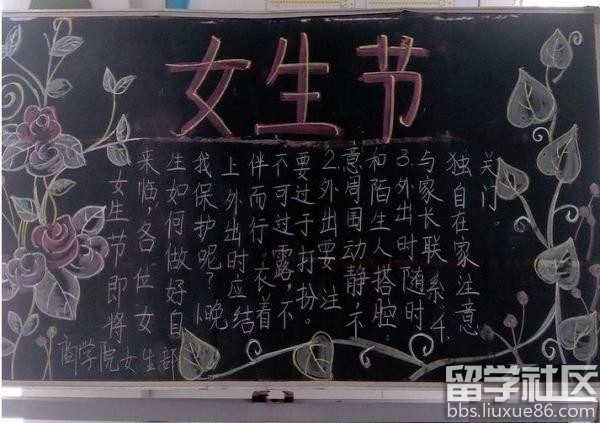 女生节
女生节即将
来临,各位女
生如何做好自
我保护呢?1晚
上外出时应结
伴而行。衣着
不可过露,不
要过于打扮。
2.外出要注
意周围动静不
和陌生人搭脸。
3.外出时随时
与家长联系.4.
独自在家注意
关门。
商学院女生部
留学社区
bbs.liuxue86.com